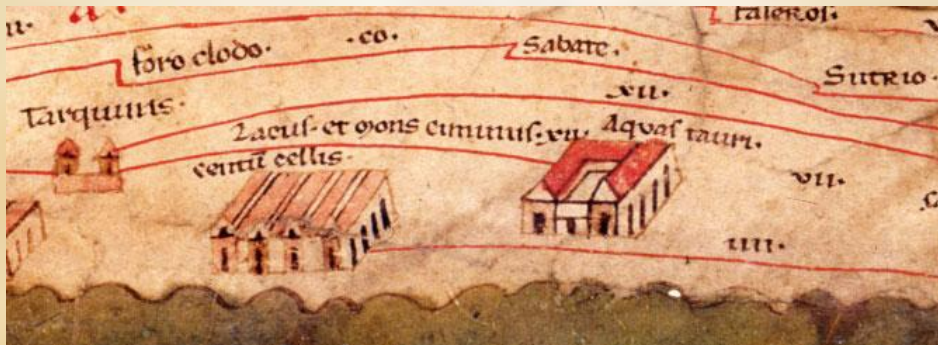 faleros.
foro clodo.
.co.
Sabate.
Sutrio.
Tarquinis.
xii.
Lacus. et mons ciminus. xii. Aquas tauri.
centū cellis.
vii.
iiii.